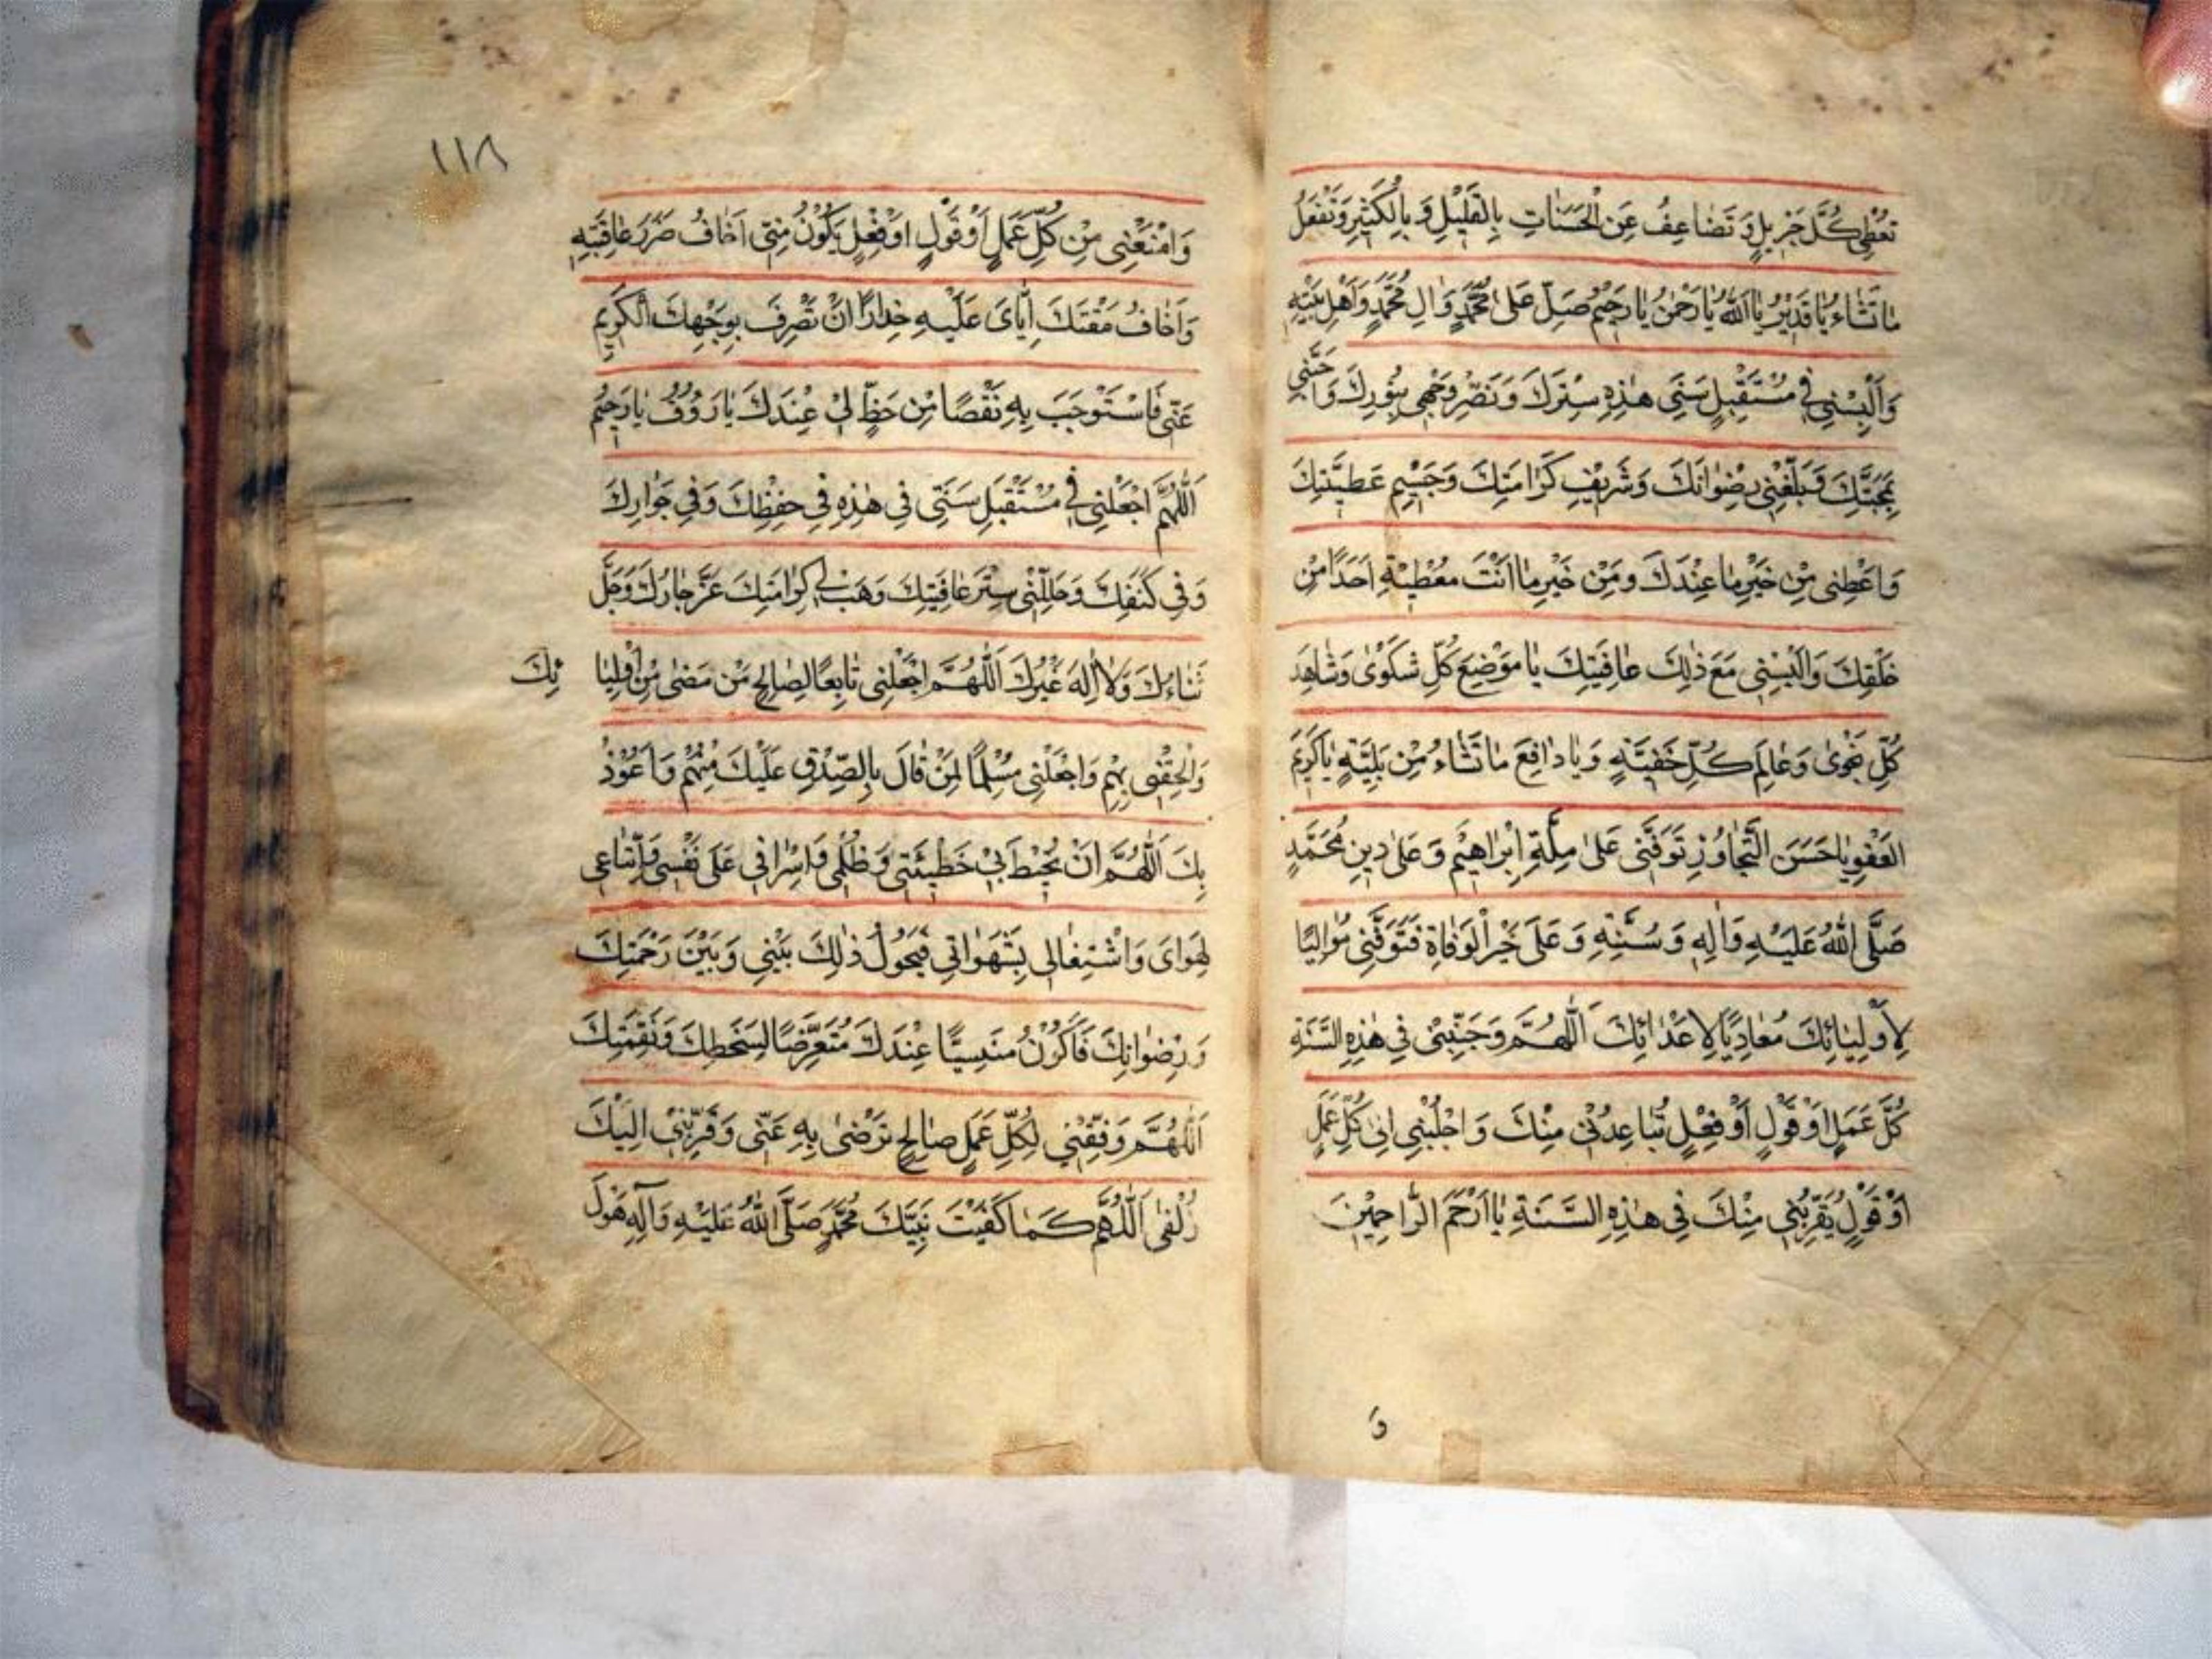 تُعْطِي كُلَّ جَزِيلٍ وَتَضَاعِفُ عَنِ الْحَسَنَاتِ بِالْقَلِيْلِ وَ بِالْكَثِيْرِ وَتَفْعَلُ
مَا تَشَاءُ يَا قَدِيْرُ يَا اَللّٰهُ يَا رَحْمٰنُ يَا رَحِيْمُ صَلِّ عَلٰى مُحَمَّدٍ وَاٰلِ مُحَمَّدٍ وَاَهْلِ بَيْتِهِ
وَاَلْبِسْنِي فِي مُسْتَقْبِلِ سَنَتِي هٰذِهِ سِتْرَكَ وَنَضِّرْ وَجْهِي بِنُورِكَ وَاَحِبَّنِي
بِمَحَبَّتِكَ وَبَلِّغْنِي رِضْوَانَكَ وَشَرِيْفَ كَرَامَتِكَ وَجَسِيْمِ عَطِيَّتِكَ
وَاَعْطِنِي مِنْ خَيْرِ مَا عِنْدَكَ وَمِنْ خَيْرِ مَا اَنْتَ مُعْطِيْهِ اَحَدًا مِنْ
خَلْقِكَ وَاَلْبِسْنِي مَعَ ذٰلِكَ عَافِيَتِكَ يَا مَوْضِعَ كُلِّ شَكْوٰى وَشَاهِدَ
كُلِّ نَجْوٰى وَعَالِمَ كُلِّ خَفِيَّةٍ وَيَا دَافِعَ مَا تَشَاءُ مِنْ بَلِيَّةٍ يَا كَرِيمَ
الْعَفْوِ يَا حَسَنَ التَّجَاوُزِ تَوَفَّنِي عَلٰى مِلَّةِ اِبْرَاهِيْمَ وَعَلٰى دِينِ مُحَمَّدٍ
صَلَّى اللّٰهُ عَلَيْهِ وَاٰلِهِ وَسُنَّتِهِ وَعَلٰى خَيْرِ الْوَفَاةِ فَتَوَفَّنِي مُوَالِيًا
لِاَوْلِيَائِكَ مُعَادِيًا لِاَعْدَائِكَ اَللّٰهُمَّ وَجَنِّبْنِي فِي هٰذِهِ السَّنَةِ
كُلَّ عَمَلٍ اَوْ قَوْلٍ اَوْ فِعْلٍ يُبَاعِدُنِي مِنْكَ وَاجْلُبْنِي اِلٰى كُلِّ عَمَلٍ
اَوْ قَوْلٍ يُقَرِّبُنِي مِنْكَ فِي هٰذِهِ السَّنَةِ يَا اَرْحَمَ الرَّاحِمِيْنَ
وَ
١١٨
وَامْنَعْنِي مِنْ كُلِّ عَمَلٍ اَوْ قَوْلٍ اَوْ فِعْلٍ يَكُوْنُ مِنِّي اَخَافُ ضَرَرَ عَاقِبَتِهِ
وَاَخَافُ مَقْتَكَ اِيَّايَ عَلَيْهِ حِذَارًا اَنْ تَصْرِفَ بِوَجْهِكَ الْكَرِيمِ
عَنِّي فَاَسْتَوْجِبَ بِهِ نَقْصًا مِنْ حَظٍّ لِيْ عِنْدَكَ يَا رَؤُوْفُ يَا رَحِيْمُ
اَللّٰهُمَّ اجْعَلْنِي فِي مُسْتَقْبِلِ سَنَتِي فِي هٰذِهِ فِي حِفْظِكَ وَفِي جِوَارِكَ
وَفِي كَنَفِكَ وَجَلِّلْنِي سِتْرَ عَافِيَتِكَ وَهَبْ لِي كَرَامَتِكَ عَزَّ جَارُكَ وَجَلَّ
ثَنَاءُكَ وَلَا اِلٰهَ غَيْرُكَ اَللّٰهُمَّ اجْعَلْنِي تَابِعًا لِصَالِحِ مَنْ مَضٰى مِنْ اَوْلِيَا ئِكَ
وَاَلْحِقْنِي بِهِمْ وَاجْعَلْنِي مُسْلِمًا لِمَنْ قَالَ بِالصِّدْقِ عَلَيْكَ مِنْهُمْ وَاَعُوْذُ
بِكَ اَللّٰهُمَّ اَنْ يُحِيْطَ بِيْ خَطِيْئَتِي وَظُلْمِي وَاِسْرَافِي عَلٰى نَفْسِي وَاتِّبَاعِي
لِهَوَايَ وَاشْتِغَالِي بِشَهَوَاتِي فَيَحُوْلُ ذٰلِكَ بَيْنِي وَبَيْنَ رَحْمَتِكَ
وَرِضْوَانِكَ فَاَكُوْنُ مَنْسِيًّا عِنْدَكَ مُتَعَرِّضًا لِسَخَطِكَ وَنَقِمَتِكَ
اَللّٰهُمَّ وَفِّقْنِي لِكُلِّ عَمَلٍ صَالِحٍ تَرْضٰى بِهِ عَنِّي وَقَرِّبْنِيْ اِلَيْكَ
زُلْفٰى اَللّٰهُمَّ كَمَا كَفَيْتَ نَبِيَّكَ مُحَمَّدٍ صَلَّى اللّٰهُ عَلَيْهِ وَاٰلِهِ هَوْلَ